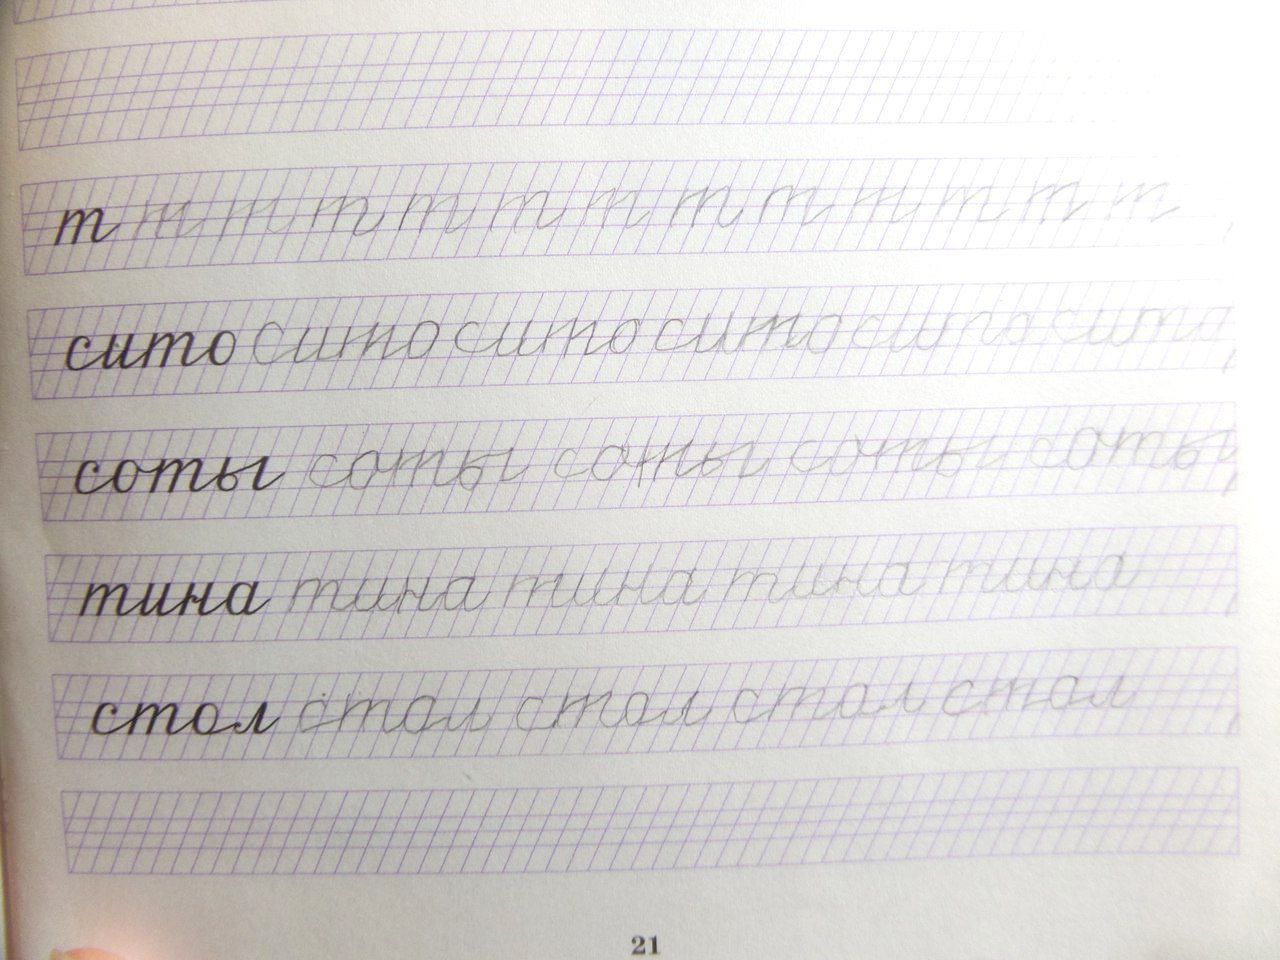 т т т т т т т т т т т т т
сито сито сито сито сито сито
соты соты соты соты соты
тина тина тина тина тина
стол стол стол стол стол
21